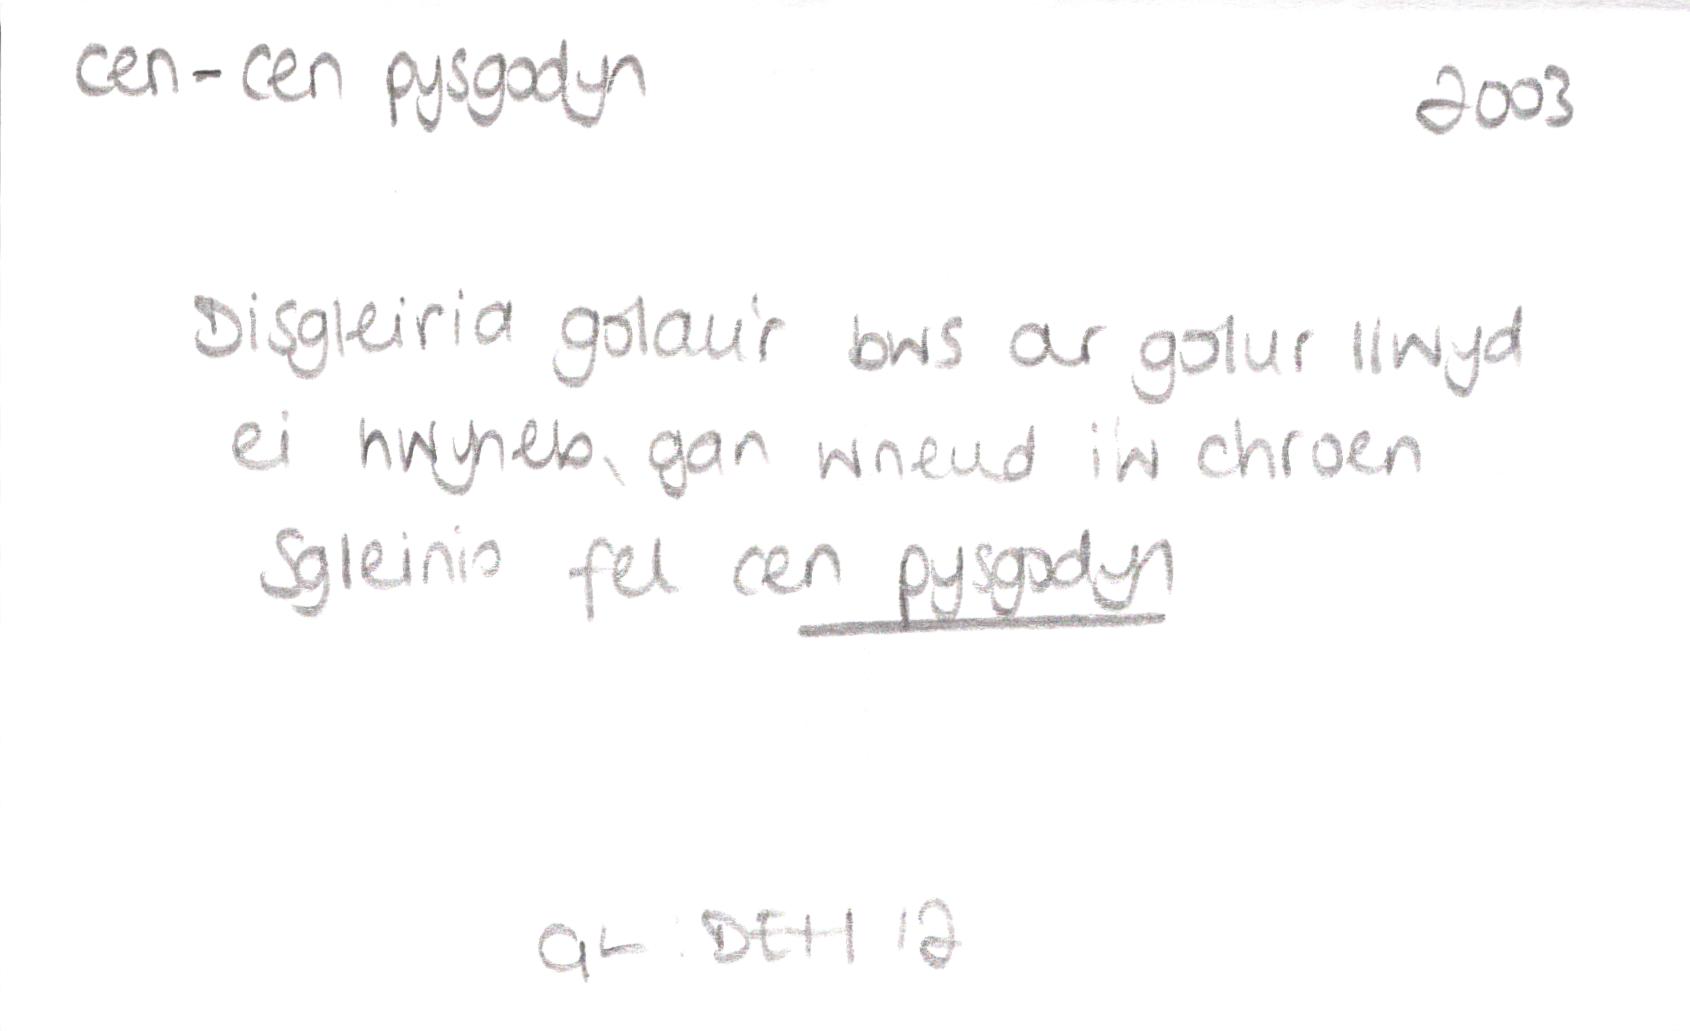 cen - cen pysgodyn
2003
Disgleiria golau'r bws ar golur llwyd
ei hwyneb, gan wneud i'w chroen
sgleinio fel cen pysgodyn
GL: DEH 12